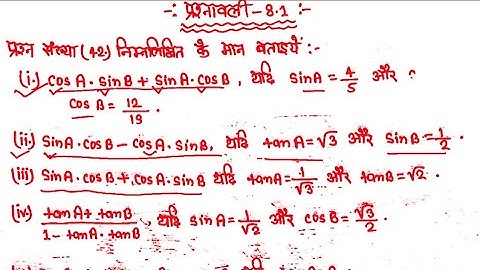 -: प्रश्नावली - 8.1 :-
प्रश्न संख्या (42) निम्नलिखित के मान बताइये :-
(i.) cosA · sinB + sinA · cosB, यदि sinA = 4/5 और
cosB = 12/13.
(ii.) sinA · cosB - cosA · sinB, यदि tanA = √3 और sinB = 1/2.
(iii) sinA · cosB + cosA · sinB यदि tanA = 1/√3 और tanB = √2.
(iv.) tanA + tanB / 1 - tanA · tanB, यदि sinA = 1/√2 और cosB = √3/2.